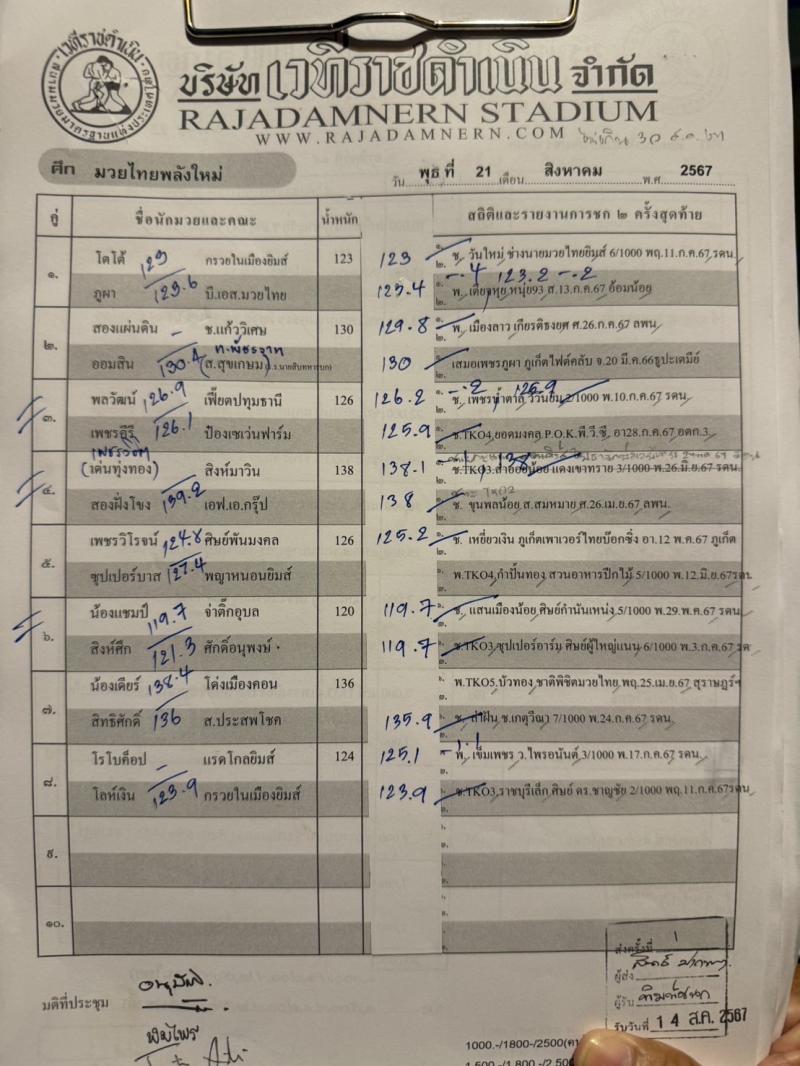 เวทีราชดำเนิน
บริษัท เวทีราชดำเนิน จำกัด
RAJADAMNERN STADIUM
WWW.RAJADAMNERN.COM
ศึก มวยไทยพลังใหม่
วัน พุธ ที่ 21 เดือน สิงหาคม พ.ศ 2567
คู่ ชื่อนักมวยและคณะ น้ำหนัก สถิติและรายงานการชก ๒ ครั้งสุดท้าย
๑. โตโต้ 123 กรวยในเมืองยิมส์ 123 123 ๑. ช. วันใหม่ ช่างนายมวยไทยยิมส์ 6/1000 พฤ.11.ก.ค.67 รดน.
๒. -.4 123.2 -.2
ภูผา 123.6 บี.เอส.มวยไทย 125.4 ๑. พ. เตี้ยหุย หนุ่ย93 ส.13.ก.ค.67 อ้อมน้อย
๒. สองแผ่นดิน - ช.แก้ววิเศษ 130 129.8 ๑. พ. เมืองลาว เกียรติธงยศ ศ.26.ก.ค.67 ลพน.
ออมสิน 130.4 (ส.สุขเกษม) 130 ๑. เสมอเพชรภูผา ภูเก็ตไฟต์คลับ จ.20 มี.ค.66ธูปะเตมีย์
๓. พลวัฒน์ 126.9 เฟี้ยตปทุมธานี 126 126.2 -.2 125.9 ๑. ช. เพชรน้ำตาล 2/1000 พ.10.ก.ค.67 รดน.
เพชรคีรี 126.1 ป้องเซเว่นฟาร์ม 125.9 ๑. ช.TKO4 ยอดมงคล P.O.K.พี.วี.ซี. อา28.ก.ค.67 อตก.3
๔. (เด่นทุ่งทอง) สิงห์มาวิน 138 138.1 138 ๑. ช.TKO3.สาออยน้อย แดงเขาทราย 3/1000 พ.26.มิ.ย.67 รดน.
สองฝั่งโขง 139.2 เอฟ.เอ.กรุ๊ป 138 ๑. ช. ขุนพลน้อย ส.สมหมาย ศ.26.เม.ย.67 ลพน.
๕. เพชรวิโรจน์ 124.8 ศิษย์พันมงคล 126 125.2 ๑. ช. เหยี่ยวเงิน ภูเก็ตเพาเวอร์ไทยบ๊อกซิ่ง อา.12 พ.ค.67 ภูเก็ต
ซุปเปอร์บาส 127.4 พญาหนอนยิมส์ ๑. พ.TKO4 กำปั้นทอง สวนอาหารปีกไม้ 5/1000 พ.12.มิ.ย.67รดน
๖. น้องแชมป์ 119.7 จ่าติ๊กอุบล 120 119.7 ๑. ช. แสนเมืองน้อย ศิษย์กำนันเหน่ง 5/1000 พ.29.พ.ค.67 รดน.
สิงห์ศึก 121.3 ศักดิ์อนุพงษ์ 119.7 ๑. ช.TKO3 ซุปเปอร์อาร์ม ศิษย์ผู้ใหญ่แนน 6/1000 พ.3.ก.ค.67 รด
๗. น้องเดียร์ 138.4 โด่งเมืองคอน 136 ๑. พ.TKO5.บัวทอง ชาติพิชิตมวยไทย พฤ.25.เม.ย.67 สุราษฎร์ฯ
สิทธิศักดิ์ 136 ส.ประสพโชค 135.9 ๑. ช. ลำฝัน ช.เกตุวีณา 7/1000 พ.24.ก.ค.67 รดน.
๘. โรโบค็อป - แรดโกลยิมส์ 124 125.1 -1.1 ๑. พ. เข็มเพชร ว.ไพรอนันต์ 3/1000 พ.17.ก.ค.67 รดน.
โลห์เงิน 123.9 กรวยในเมืองยิมส์ 123.9 ๑. ช.TKO3 ราชบุรีเล็ก ศิษย์ ดร.ชาญชัย 2/1000 พฤ.11.ก.ค.67รดน
๙.
๑๐.
มติที่ประชุม
พิมไพร
ส่งครั้งที่ 1
ผู้ส่ง
ผู้รับ
รับวันที่ 14 ส.ค. 2567
1000.-/1800-/2500(คน
1,500.-/1,800.-/2,500